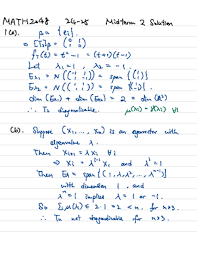 MATH2048 24-25 Midterm 2 Solution
1(a). β = {e_i}.
⇒ [T]_β = (0 1 / 1 0)
f_T(t) = t² - 1 = (t+1)(t-1)
Let λ₁ = 1, λ₂ = -1.
E_λ₁ = N((-1 1 / 1 -1)) = span {(1 / 1)}
E_λ₂ = N((1 1 / 1 1)) = span {(1 / -1)}
dim(E_λ₁) + dim(E_λ₂) = 2 = dim(R²)
∴ T₂ is diagonalizable
(b). Suppose (x₁, ..., x_n) is an eigenvector with
eigenvalue λ.
Then x_{i+1} = λ x_i ∀i
⇒ x_i = λ^{i-1} x₁ and λ^n = 1
Then E_λ = span {(1, λ, λ², ..., λ^{n-1})}
with dimension 1, and
λ^n = 1 implies λ = 1 or -1.
≤ 2·1 = 2 < n, for n≥3.
∴ T_n not diagonalizable for n≥3.